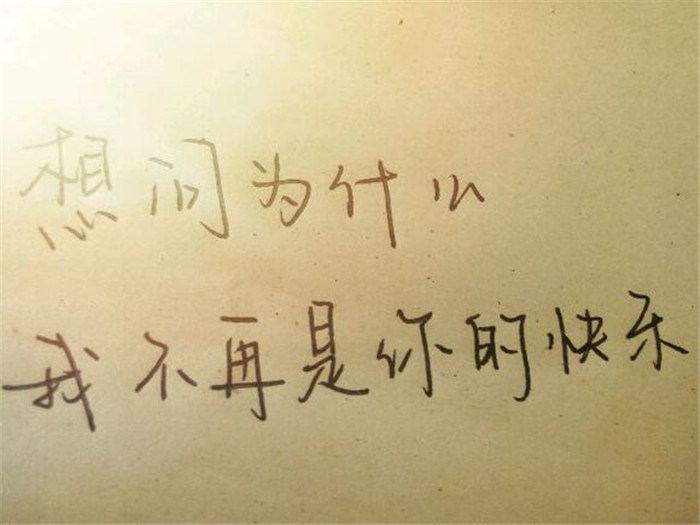 想问为什么
我不再是你的快乐